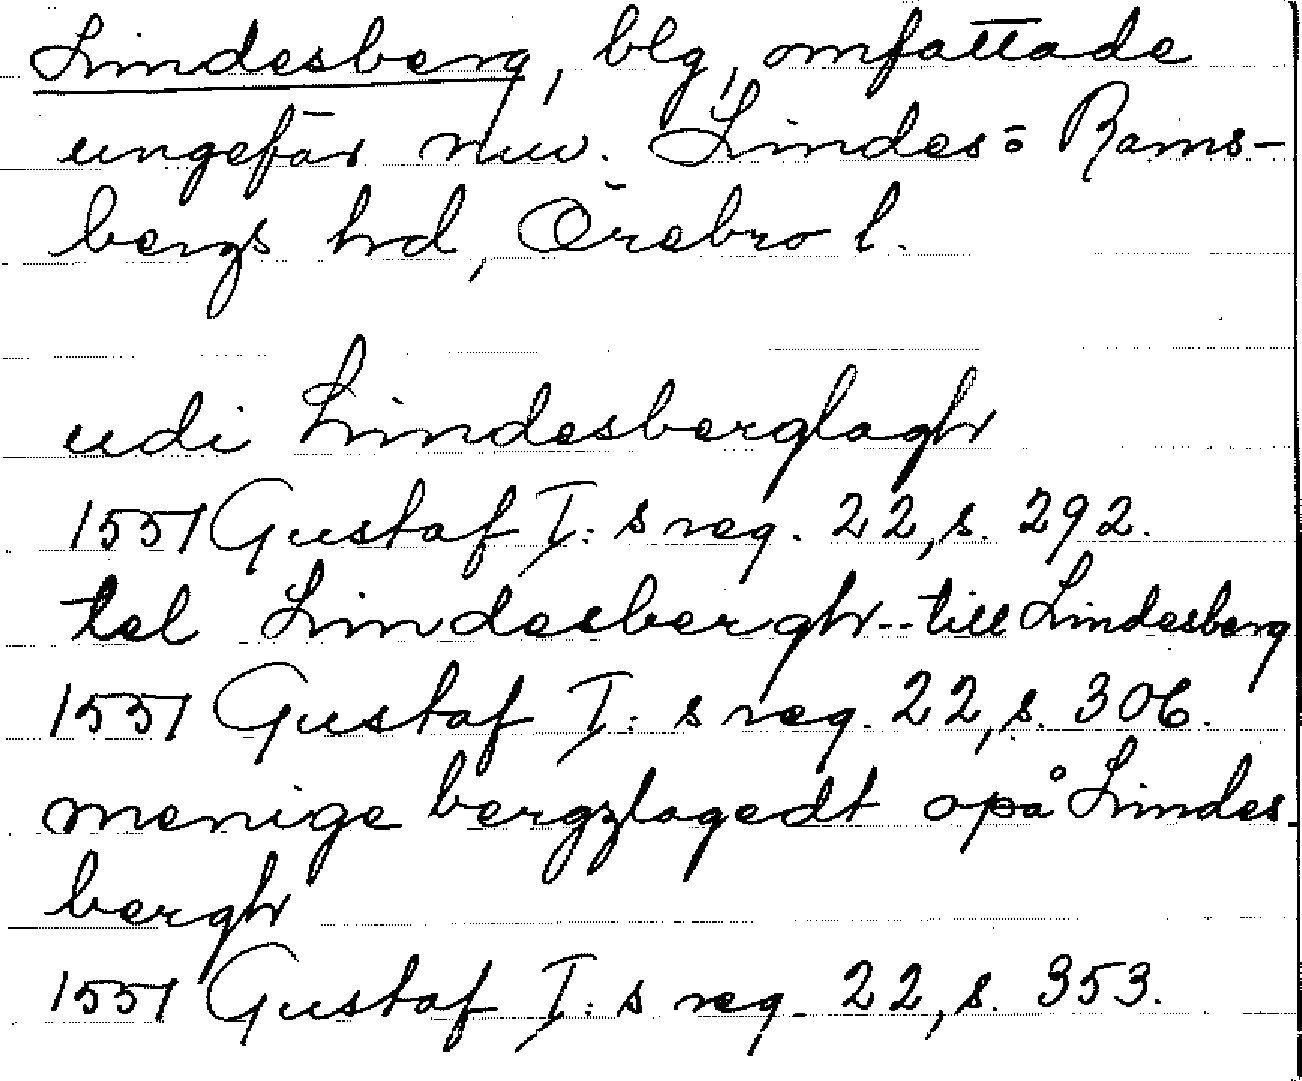 Lindesberg, blg, omfattade
ungefär nuv. Lindes= Rams-
bergs hd, Örebro l.
udi Lindesberglagh
1551 Gustaf I: s reg. 22, s. 292.
tel Lindesbergh -- till Lindesberg
1551 Gustaf I: s reg. 22, s. 306.
menige bergzlagedt opå Lindes-
bergh
1551 Gustaf I: s reg. 22, s. 353.